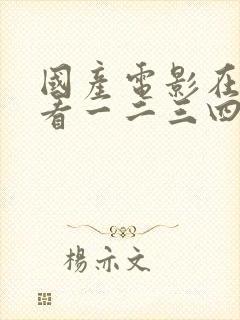 國產電影在
看一二三四
楊亦文